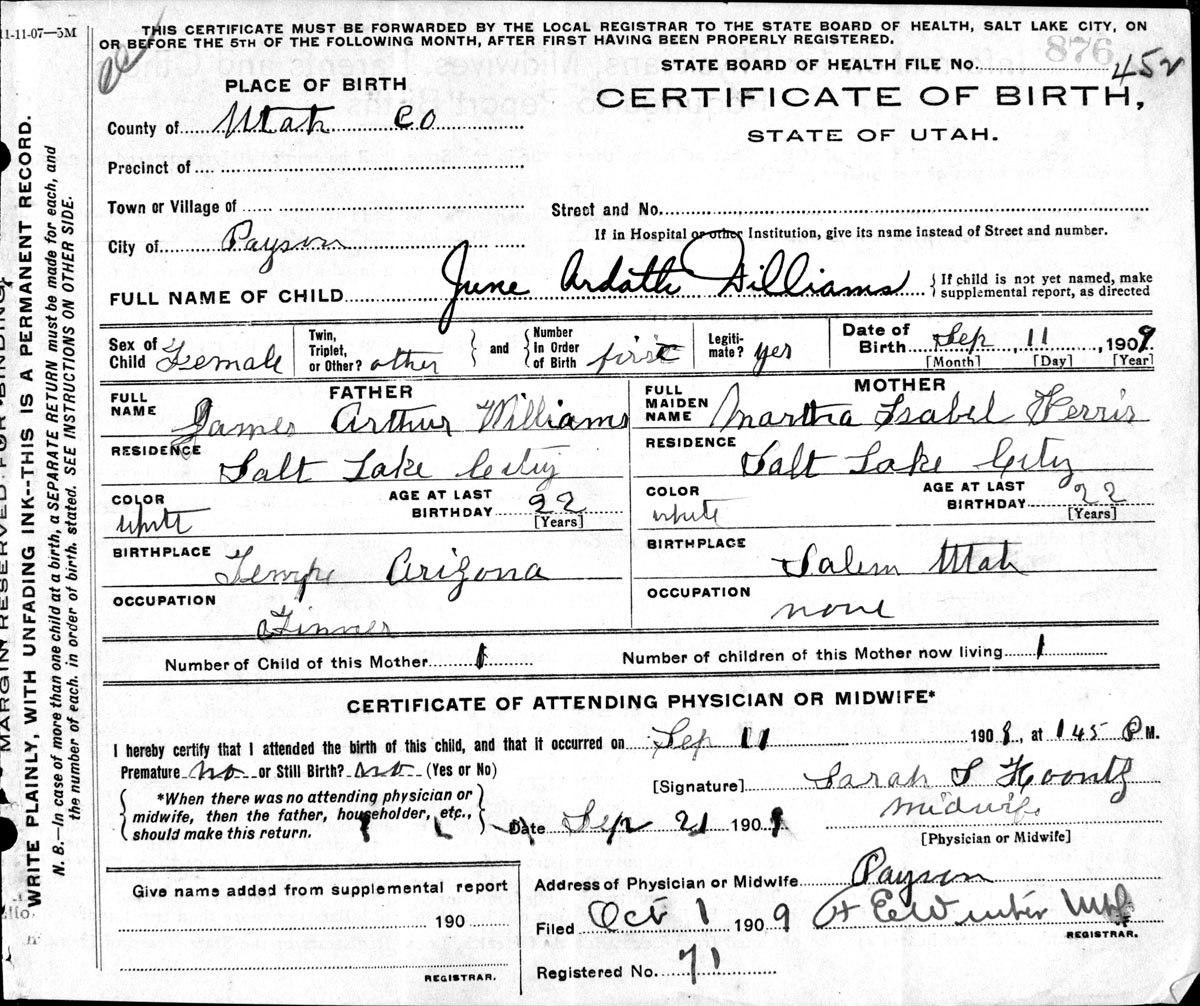 11-11-07—5M
THIS CERTIFICATE MUST BE FORWARDED BY THE LOCAL REGISTRAR TO THE STATE BOARD OF HEALTH, SALT LAKE CITY, ON
OR BEFORE THE 5TH OF THE FOLLOWING MONTH, AFTER FIRST HAVING BEEN PROPERLY REGISTERED.
876
STATE BOARD OF HEALTH FILE No. 452
CERTIFICATE OF BIRTH,
STATE OF UTAH.
PLACE OF BIRTH
County of Utah Co
Precinct of
Town or Village of
Street and No.
City of Payson
If in Hospital or other Institution, give its name instead of Street and number.
FULL NAME OF CHILD June Ardath Williams { If child is not yet named, make
supplemental report, as directed
Sex of Child Female
Twin, Triplet, or Other? other } and { Number In Order of Birth first
Legitimate? yes
Date of Birth Sep 11 1909
[Month] [Day] [Year]
FATHER
FULL NAME James Arthur Williams
RESIDENCE Salt Lake City
COLOR white
AGE AT LAST BIRTHDAY 22
[Years]
BIRTHPLACE Tempe Arizona
OCCUPATION Tinner
MOTHER
FULL MAIDEN NAME Martha Isabel Ferris
RESIDENCE Salt Lake City
COLOR white
AGE AT LAST BIRTHDAY 22
[Years]
BIRTHPLACE Salem Utah
OCCUPATION none
Number of Child of this Mother 1
Number of children of this Mother now living 1
CERTIFICATE OF ATTENDING PHYSICIAN OR MIDWIFE*
I hereby certify that I attended the birth of this child, and that it occurred on Sep 11 1909, at 1 45 P M.
Premature No or Still Birth? No (Yes or No)
[Signature] Sarah S Koontz
{ *When there was no attending physician or
midwife, then the father, householder, etc.,
should make this return. }
Date Sep 21 1909
midwife
[Physician or Midwife]
Give name added from supplemental report
190
REGISTRAR.
Address of Physician or Midwife Payson
Filed Oct 1 1909
REGISTRAR.
Registered No. 71
MARGIN RESERVED FOR BINDING
WRITE PLAINLY, WITH UNFADING INK--THIS IS A PERMANENT RECORD.
N. B.—In case of more than one child at a birth, a SEPARATE RETURN must be made for each, and
the number of each, in order of birth, stated. SEE INSTRUCTIONS ON OTHER SIDE.